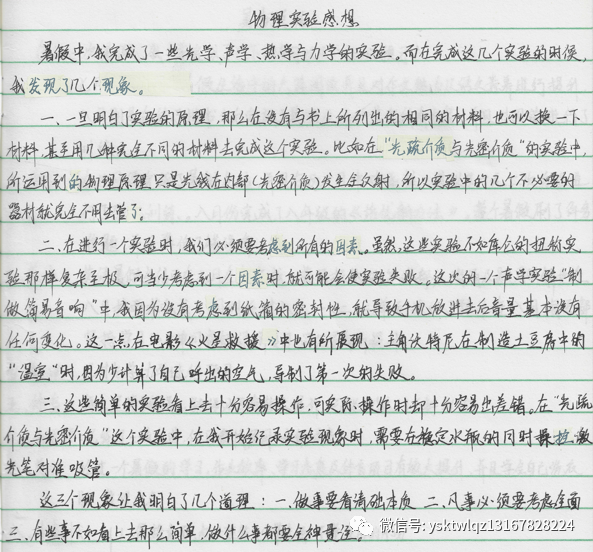 物理实验感想
暑假中,我完成了一些光学、声学、热学与力学的实验。而在完成这几个实验的时候,
我发现了几个现象。
一、一旦明白了实验的原理,那么在没有与书上所列出的相同的材料,也可以换一下
材料,甚至用几种完全不同的材料去完成这个实验。比如在“光疏介质与光密介质”的实验中,
所运用到的物理原理只是光线在内部(光密介质)发生全反射,所以实验中的几个不必要的
器材就完全不用去管了。
二、在进行一个实验时,我们必须要考虑到所有的因素。虽然,这些实验不如库仑的扭称实
验那样复杂至极,可当少考虑到一个因素时,就可能会使实验失败。这次的一个声学实验“制
做简易音响”中,我因为没有考虑到纸箱的密封性,就导致手机放进去后音量基本没有
任何变化。这一点,在电影《火星救援》中也有所展现:主角沃特尼在制造土豆房中的
“温室”时,因为少计算了自己呼出的空气,导制了第一次的失败。
三、这些简单的实验看上去十分容易操作,可实际操作时却十分容易出差错。在“光疏
介质与光密介质”这个实验中,在我开始记录实验现象时,需要在稳定水瓶的同时操控激
光笔对准吸管。
这三个现象让我明白了几个道理:一、做事要看清础本质 二、凡事必须要考虑全面
三、有些事不如看上去那么简单,做什么事都要全神贯注。
微信号: ysktwlqz13167828224